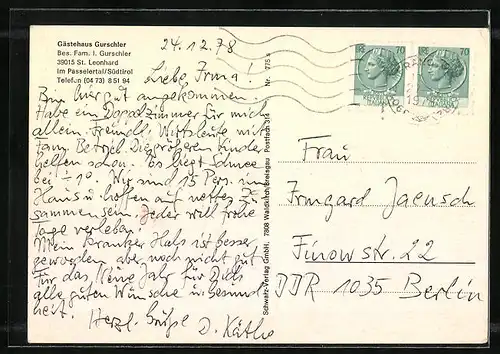 Gästehaus Gurschler
Bes. Fam. I. Gurschler
39015 St. Leonhard
im Passeiertal/Südtirol
Telefon (04 73) 8 51 94
24.12.78
Liebe Irma!
Bin hier gut angekommen.
Habe ein Doppelzimmer für mich
allein. Freundl. Wirtsleute mit
Fam. Betrieb. Die größeren Kinder
helfen schon. Es liegt Schnee
bei -10°. Wir sind 15 Pers. im
Haus u. hoffen auf nettes Zu-
sammensein. Jeder will frohe
Tage verleben.
Mein kranker Hals ist besser
geworden aber noch nicht gut.
Für das Neue Jahr für Dich
alle guten Wünsche u. Gesund-
heit!
Herzl. Grüße D. Käthe
Schwarz-Verlag GmbH, 7808 Waldkirch/Breisgau Postfach 314 Nr. 775 s
70
70
Frau
Irmgard Jaensch
Finowstr. 22
DDR 1035 Berlin